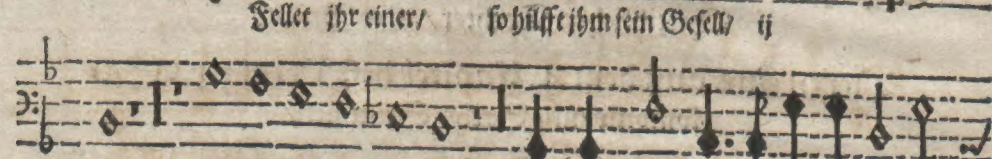 Fellet jhr einer/ so hilfft jhm sein Gesell/ ij